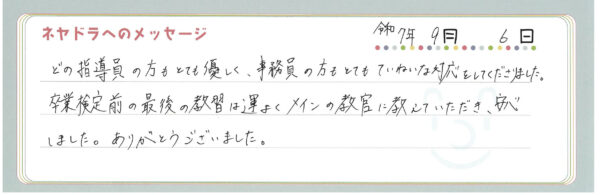 ネヤドラへのメッセージ
令和 7年 9月 6日
どの指導員の方もとても優しく、事務員の方もとてもていねいな対応をしてくださいました。
卒業検定前の最後の教習は運よくメインの教官に教えていただき、安心
しました。ありがとうございました。